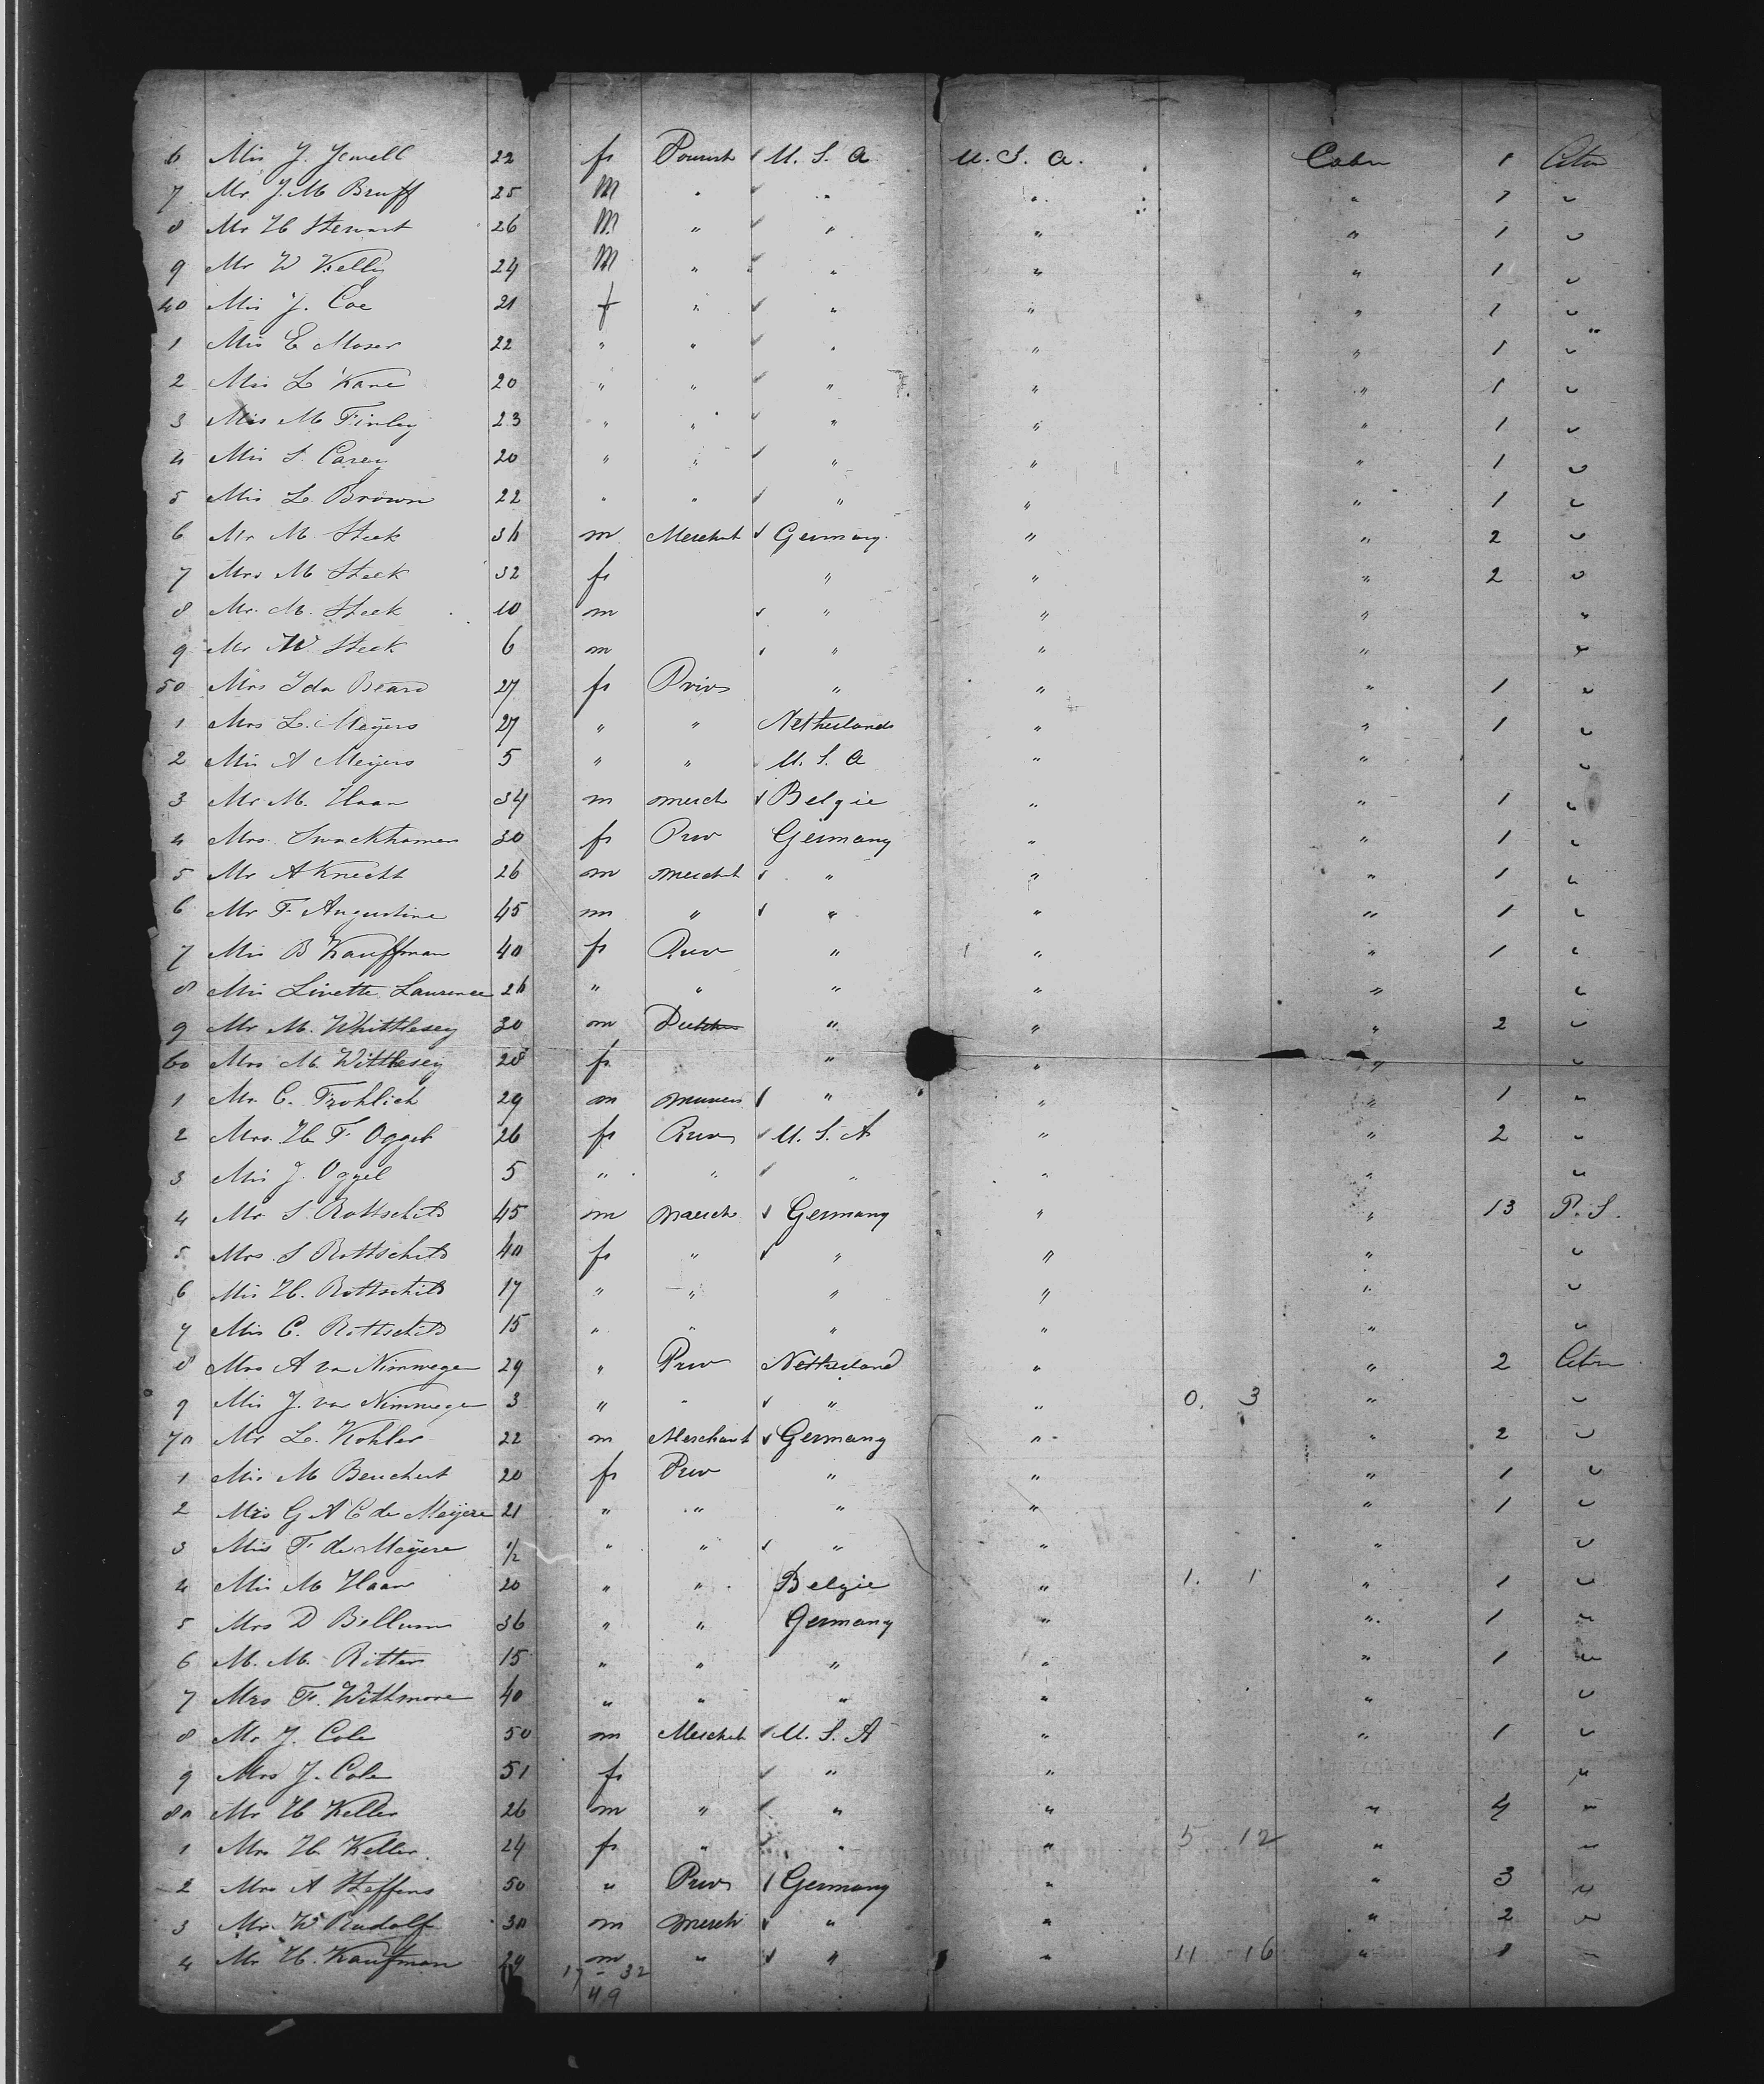 6 Mis J. Jewell 22 fr Tourist ✓ U. S. A U. S. A. Cabin 1
7 Mr J. M Bruff 25 M " ✓ " " " 1 "
8 Mr H Stewart 26 M " ✓ " " " 1 "
9 Mr W Kelly 24 M " ✓ " " " 1 "
40 Mis J. Coe 21 f " ✓ " " " 1 "
1 Mis E Moser 22 " " ✓ " " " 1 "
2 Mis L Kane 20 " " ✓ " " " 1 "
3 Mis M Finley 23 " " ✓ " " " 1 "
4 Mis S. Carey 20 " " ✓ " " " 1 "
5 Mis L Brown 22 " " ✓ " " " 1 "
6 Mr M Steek m Merchnt ✓ Germany " " 2 "
7 Mrs M Steek 32 fr " " " 2 "
8 Mr. M. Steek 10 m ✓ " " " "
9 Mr W. Steek 6 m ✓ " " " "
50 Mrs Ida Beard 27 fr Priv " " " 1 "
1 Mrs L. Meyers 27 " " Netherlands " " 1 "
2 Mis A Meyers 5 " " U. S. A " " "
3 Mr M. Haan 34 m merch ✓ Belgie " " 1 "
4 Mrs. 30 fr Priv Germany " " 1 "
5 Mr A Knecht 26 m mercht ✓ " " " 1 "
6 Mr F. Augustine 45 m " ✓ " " " 1 "
7 Mis B Kauffman 40 fr Priv " " " 1 "
8 Mis Linette Laurence " " " " " "
9 Mr M. Whittlesey 30 m " " " 2 "
60 Mrs M. Wittlesey 28 fr " " " "
1 Mr. C. Frohlich 29 m ✓ " " " 1 "
2 Mrs. H. F. Oggel 26 fr Priv ✓ U. S. A " " 2 "
3 Mis J. Oggel 5 " " ✓ " " " "
4 Mr S. Rottschild 45 m merch ✓ Germany " " 13 P. S.
5 Mrs. S Rottschild 40 fr " ✓ " " " "
6 Mis H. Rottschild 17 " " " " " "
7 Mis C. Rottschild 15 " " " " " "
8 Mrs A va Nimwegen 29 " Priv Netherland " " 2
9 Mis J. va Nimwegen 3 " " ✓ " " 0. 3 " "
70 Mr L. Kohler 22 m Merchant ✓ Germany " " 2 "
1 Mis M Beuchert 20 fr Priv " " " 1 "
2 Mis G A C de Meijere 21 " " " " " 1 "
3 Mis F de Meijere 1/2 " " ✓ " " " "
4 Mis M Haan 20 " " Belgie " 1. 1 " 1 "
5 Mrs D Bellum 36 " " Germany " " 1 "
6 M. M. Ritter 15 " " " " " 1 "
7 Mrs F. Withmore 40 " " " " " "
8 Mr J. Cole 50 m Merchnt ✓ U. S. A " " 1 "
9 Mrs J. Cole 51 fr ✓ " " "
80 Mr H Keller 26 m " ✓ " " " 4 "
1 Mrs H. Keller 24 fr " ✓ " " 5 12 " "
2 Mrs A Steffens 50 " Priv ✓ Germany " " 3 "
3 Mr. W Rudolf 30 m merch ✓ " " " 2 "
4 Mr H. Kaufman m " ✓ " " 11 16 " 1 "
17 - 32
49